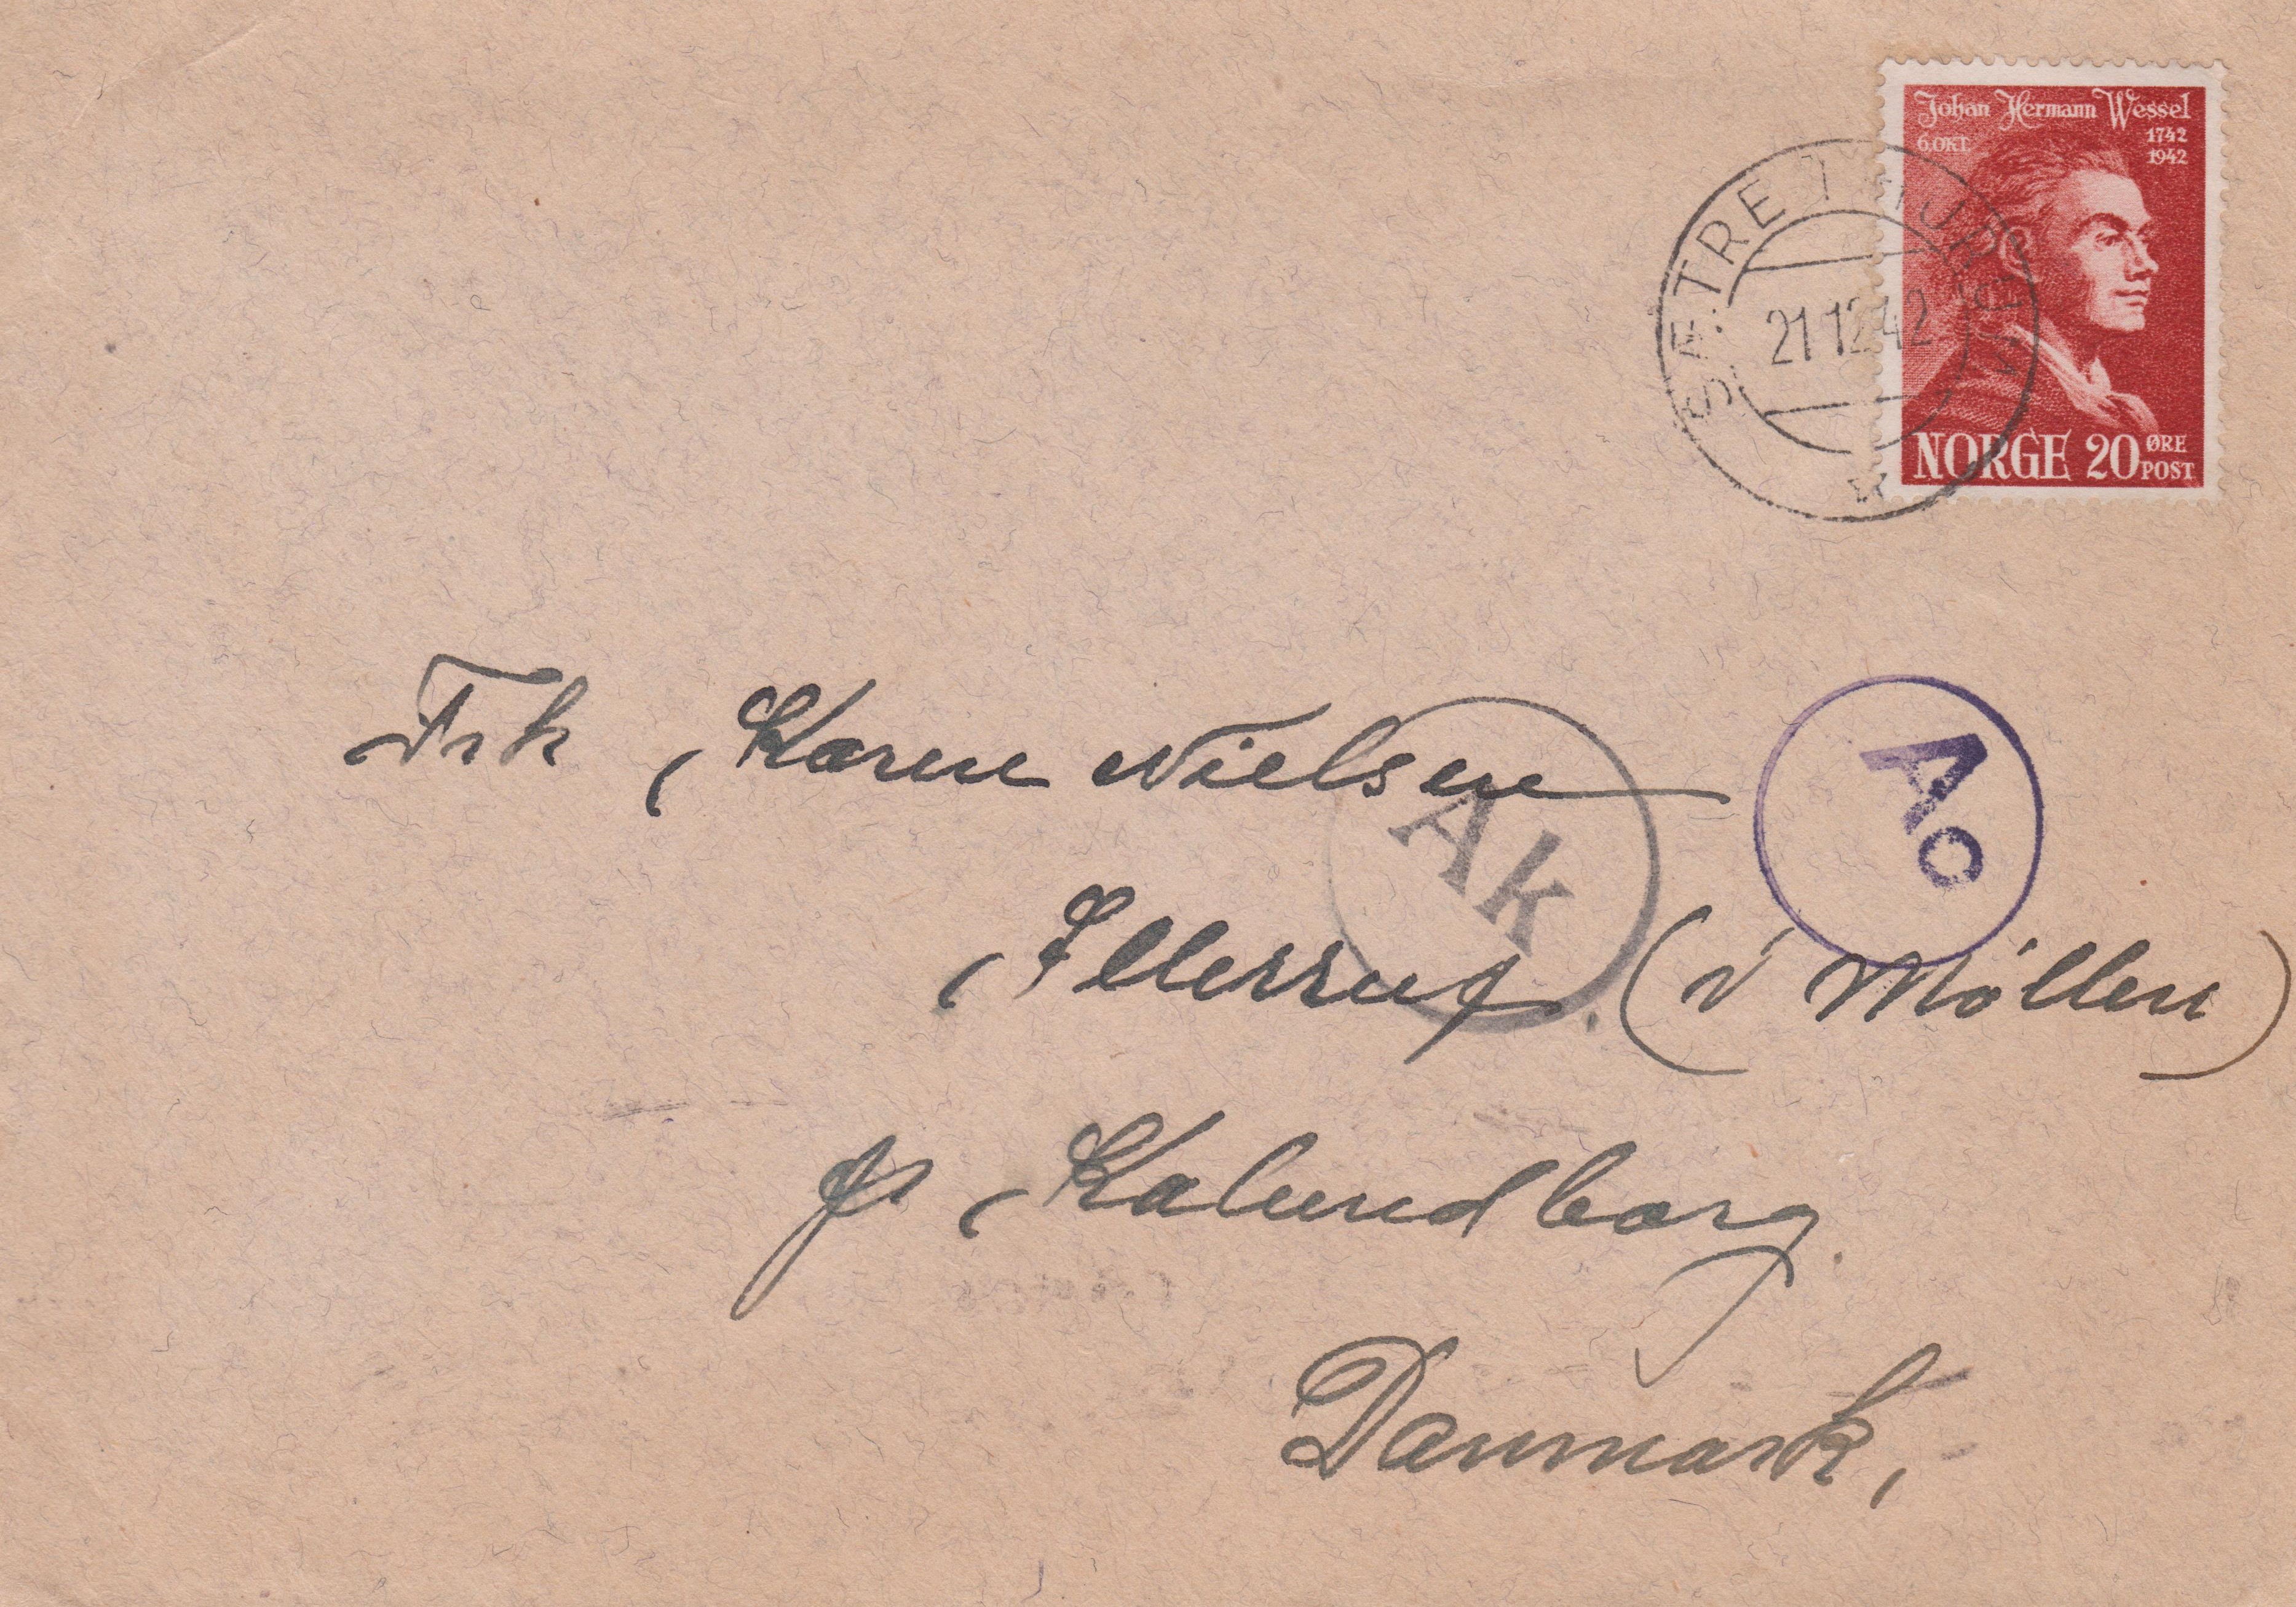 Johan Hermann Wessel
6. OKT. 1742
1942
NORGE 20 ØRE
POST
SÆTRE I HURUM
21 12 42
Frk Karen Nielsen
Ak
Ac
Illerrup (v Möllen)
pr Kalundborg
Danmark,